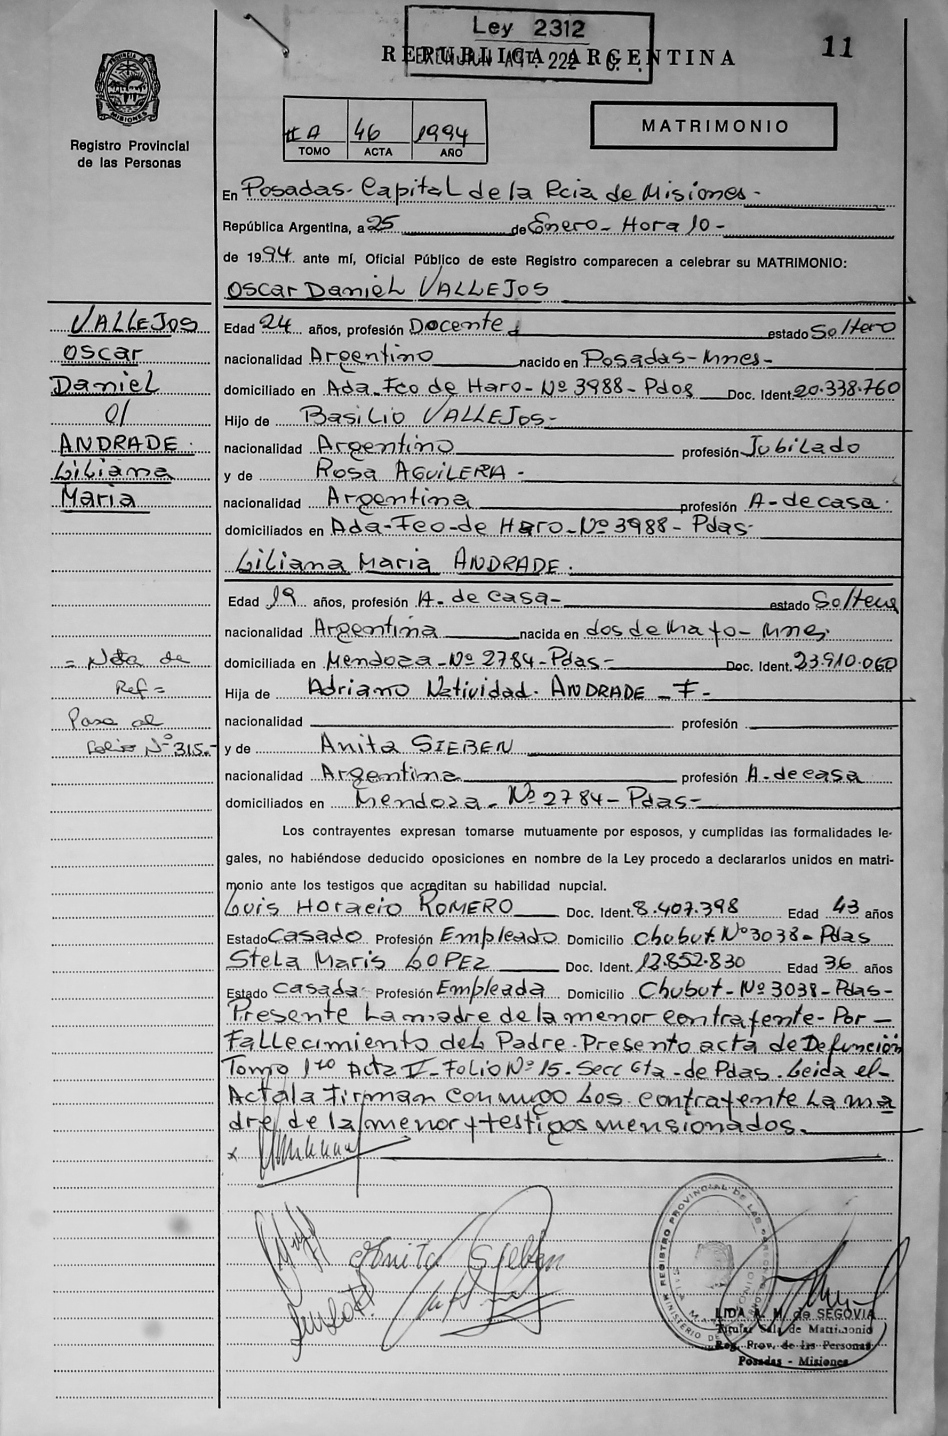 Ley 2312
REPUBLICA ARGENTINA
ART. 222
11
PROVINCIA DE MISIONES
Registro Provincial
de las Personas
46 1994
TOMO ACTA AÑO
MATRIMONIO
En Posadas- Capital de la Pcia de Misiones-
República Argentina, a 25 de Enero- Hora 10-
de 1994 ante mí, Oficial Público de este Registro comparecen a celebrar su MATRIMONIO:
Oscar Daniel VALLEJOS
VALLEJOS
Oscar
Daniel
c/
ANDRADE.
Liliana
Maria
Edad 24 años, profesión Docente estado Soltero
nacionalidad Argentino nacido en Posadas-Mnes-
domiciliado en Ada-Fco de Haro-Nº 3988-Pdas Doc. Ident. 20.338.760
Hijo de Basilio VALLEJOS-
nacionalidad Argentino profesión Jubilado
y de Rosa AGUILERA-
nacionalidad Argentina profesión A-de casa.
domiciliados en Ada-Fco-de Haro-Nº 3988-Pdas-
Liliana Maria ANDRADE.
Edad 19 años, profesión A. de casa- estado Soltera
nacionalidad Argentina nacida en dos de Mayo-Mnes.
domiciliada en Mendoza-Nº 2784-Pdas- Doc. Ident. 23.910.060
Hija de Adriano Natividad. ANDRADE-F-
nacionalidad profesión
y de Anita SIEBEN
nacionalidad Argentina profesión A-de casa
domiciliados en Mendoza-Nº 2784-Pdas-
= Nota de
Ref=
Pasa al
Folio Nº 315.-
Los contrayentes expresan tomarse mutuamente por esposos, y cumplidas las formalidades le-
gales, no habiéndose deducido oposiciones en nombre de la Ley procedo a declararlos unidos en matri-
monio ante los testigos que acreditan su habilidad nupcial.
Luis Horacio ROMERO Doc. Ident. 8.407.398 Edad 43 años
Estado Casado Profesión Empleado Domicilio Chubut Nº 3038-Pdas
Stela Maris LOPEZ Doc. Ident. 12.852.830 Edad 36 años
Estado Casada Profesión Empleada Domicilio Chubut-Nº 3038-Pdas-
Presente La madre de la menor contrayente- Por-
Fallecimiento del Padre. Presento acta de Defunción
Tomo 1ro Acta V-Folio Nº 15-Secc 6ta-de Pdas. Leida el-
Acta la Firman conmigo Los contrayente La ma
dre de la menor y testigos mensionados.
x
Anita Sieben
REGISTRO PROVINCIAL DE LAS PERSONAS
MINISTERIO DE
LIDA A. M. de SEGOVIA
Titular Sala de Matrimonio
Reg. Prov. de las Personas
Posadas - Misiones